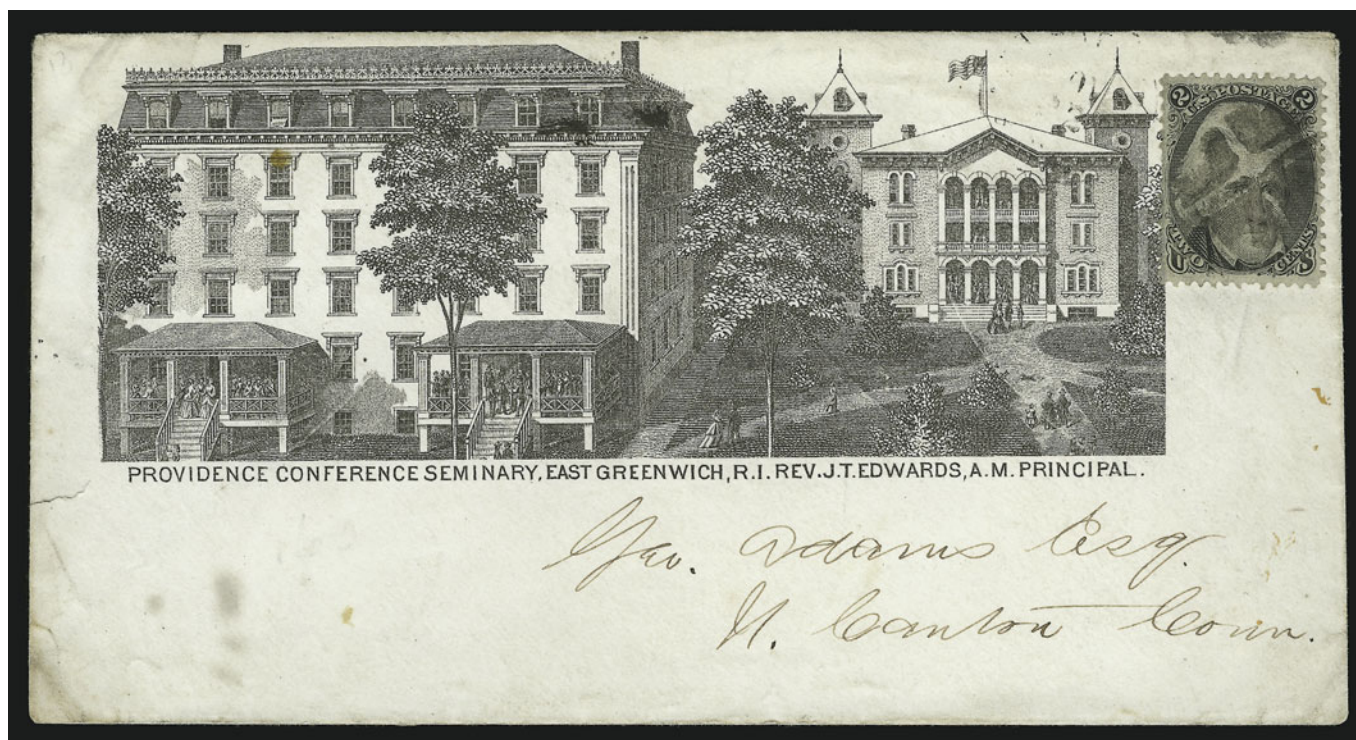 2 U.S. POSTAGE 2
TWO CENTS
PROVIDENCE CONFERENCE SEMINARY, EAST GREENWICH, R.I. REV. J.T. EDWARDS, A.M. PRINCIPAL.
Geo. Adams Esq.
N. Canton Conn.